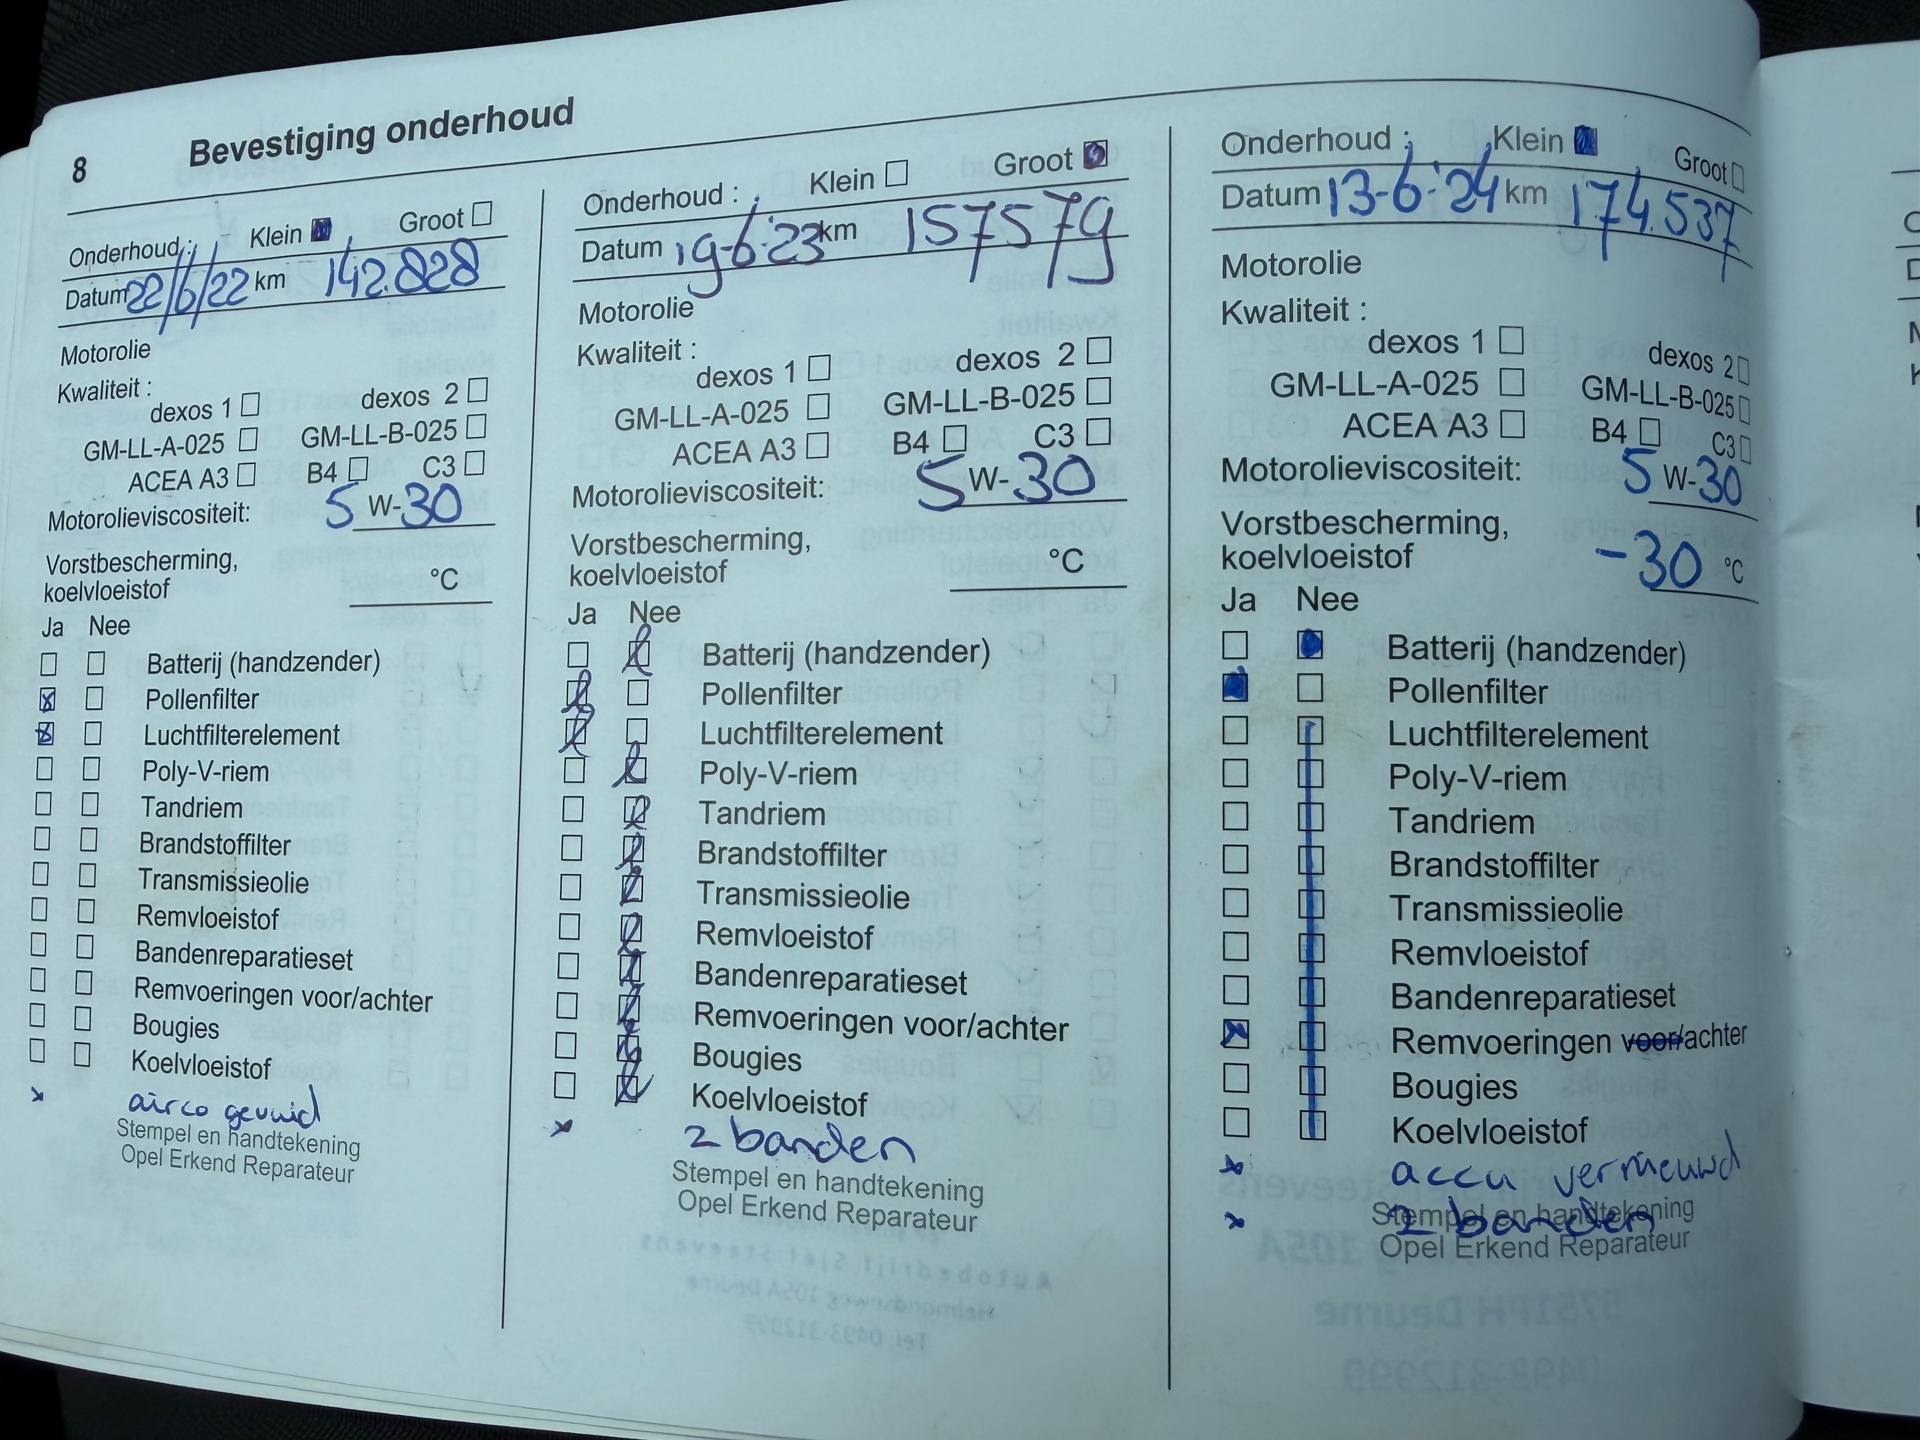 8 Bevestiging onderhoud
Onderhoud : Klein Groot
Datum 22/6/22 km 142.828
Motorolie
Kwaliteit :
dexos 1 dexos 2
GM-LL-A-025 GM-LL-B-025
ACEA A3 B4 C3
Motorolieviscositeit: 5 W-30
Vorstbescherming,
koelvloeistof °C
Ja Nee
Batterij (handzender)
Pollenfilter
Luchtfilterelement
Poly-V-riem
Tandriem
Brandstoffilter
Transmissieolie
Remvloeistof
Bandenreparatieset
Remvoeringen voor/achter
Bougies
Koelvloeistof
x airco gevuld
Stempel en handtekening
Opel Erkend Reparateur
Onderhoud : Klein Groot
Datum 19-6-'23 km 157579
Motorolie
Kwaliteit :
dexos 1 dexos 2
GM-LL-A-025 GM-LL-B-025
ACEA A3 B4 C3
Motorolieviscositeit: 5 W-30
Vorstbescherming,
koelvloeistof °C
Ja Nee
Batterij (handzender)
Pollenfilter
Luchtfilterelement
Poly-V-riem
Tandriem
Brandstoffilter
Transmissieolie
Remvloeistof
Bandenreparatieset
Remvoeringen voor/achter
Bougies
Koelvloeistof
x 2 banden
Stempel en handtekening
Opel Erkend Reparateur
Onderhoud : Klein Groot
Datum 13-6-'24 km 174.537
Motorolie
Kwaliteit :
dexos 1 dexos 2
GM-LL-A-025 GM-LL-B-025
ACEA A3 B4 C3
Motorolieviscositeit: 5 W-30
Vorstbescherming,
koelvloeistof -30 °C
Ja Nee
Batterij (handzender)
Pollenfilter
Luchtfilterelement
Poly-V-riem
Tandriem
Brandstoffilter
Transmissieolie
Remvloeistof
Bandenreparatieset
Remvoeringen voor/achter
Bougies
Koelvloeistof
x accu vernieuwd
x 2 banden
Stempel en handtekening
Opel Erkend Reparateur